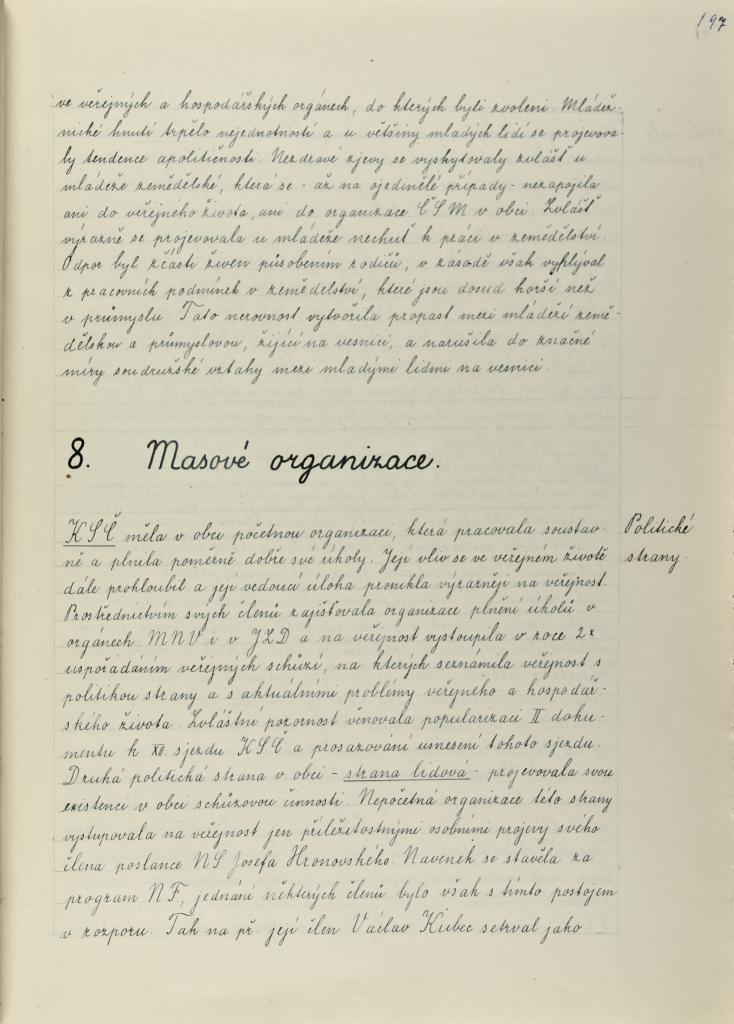 197
ve veřejných a hospodářských orgánech, do kterých byli zvoleni. Mládež-
nické hnutí trpělo nejednotností a u většiny mladých lidí se projevova-
ly tendence apolitičnosti. Nezdravé zjevy se vyskytovaly zvlášť u
mládeže zemědělské, která se - až na ojedinělé případy - nezapojila
ani do veřejného života, ani do organizace ČSM v obci. Zvlášť
výrazně se projevovala u mládeže nechuť k práci v zemědělství.
Odpor byl zčásti živen působením rodičů, v zásadě však vyplýval
z pracovních podmínek v zemědělství, které jsou dosud horší než
v průmyslu. Tato nerovnost vytvořila propast mezi mládeží země-
dělskou a průmyslovou, žijící na vesnici, a narušila do značné
míry soudružské vztahy mezi mladými lidmi na vesnici.
8. Masové organizace.
Politické
strany.
KSČ měla v obci početnou organizaci, která pracovala soustav-
ně a plnila poměrně dobře své úkoly. Její vliv se ve veřejném životě
dále prohloubil a její vedoucí úloha pronikla výrazněji na veřejnost.
Prostřednictvím svých členů zajišťovala organizace plnění úkolů v
orgánech MNV i v JZD a na veřejnost vystoupila v roce 2x
uspořádáním veřejných schůzí, na kterých seznámila veřejnost s
politikou strany a s aktuálními problémy veřejného a hospodář-
ského života. Zvláštní pozornost věnovala popularizaci II. doku-
mentu k XII. sjezdu KSČ a prosazování usnesení tohoto sjezdu.
Druhá politická strana v obci - strana lidová - projevovala svou
existenci v obci schůzovou činností. Nepočetná organizace této strany
vystupovala na veřejnost jen příležitostnými osobními projevy svého
člena poslance NS Josefa Hronovského. Navenek se stavěla za
program NF, jednání některých členů bylo však s tímto postojem
v rozporu. Tak na př. její člen Václav Kubec setrval jako